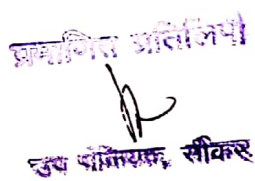 प्रमाणित प्रतिलिपी
उप पंजियक, सीकर